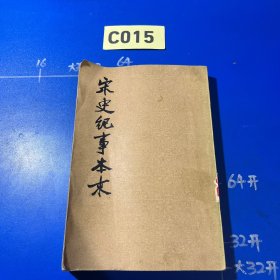 C015
16
64
宋史纪事本末
64开
32开
大32开